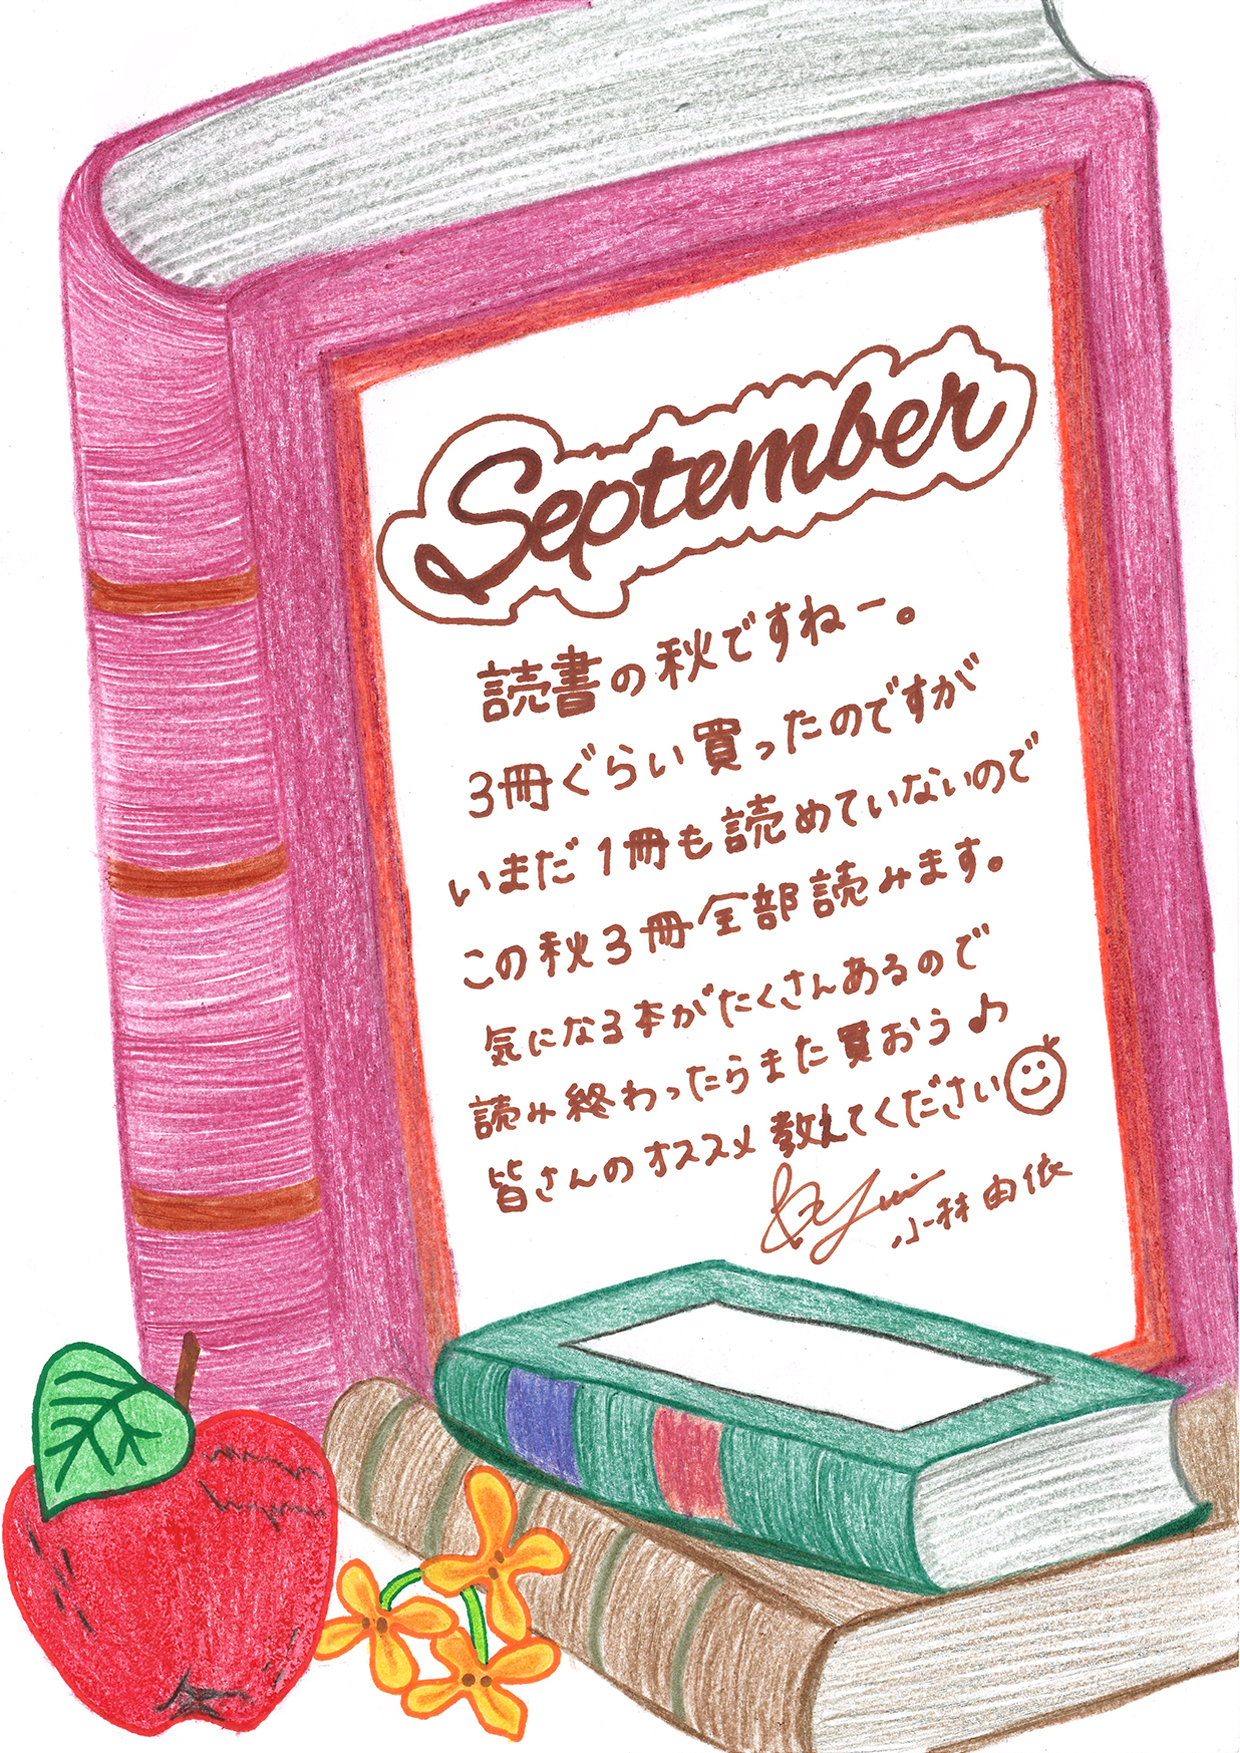 September
読書の秋ですねー。
3冊ぐらい買ったのですが
いまだ1冊も読めていないので
この秋3冊全部読みます。
気になる本がたくさんあるので
読み終わったらまた買おう♪
皆さんのオススメ教えてください
Yui
小林由依